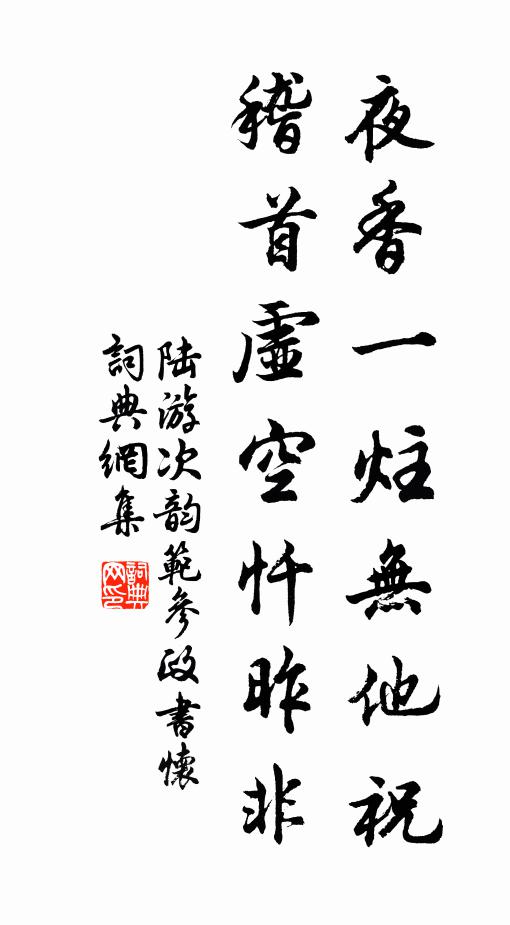 夜香一炷無他祝
稽首虛空忏昨非
陆游次韵範參政書懷
詞典網集
詞典
网印